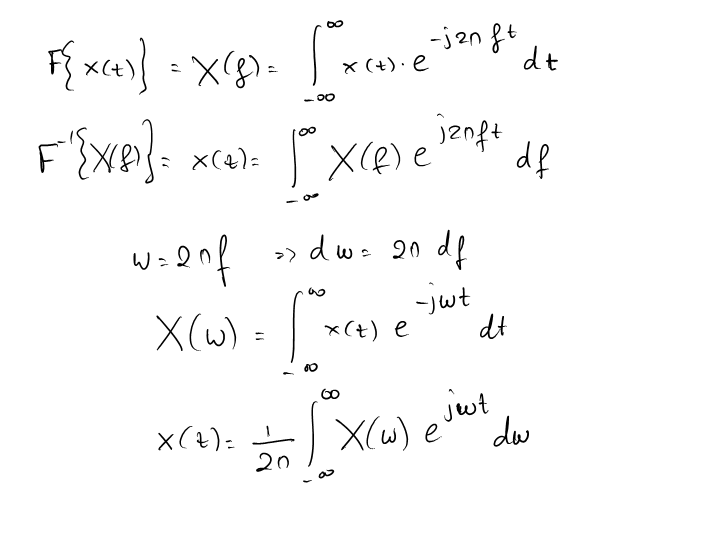 F{x(t)} = X(f) = ∫_{-∞}^{∞} x(t)·e^{-j2πft} dt
F^{-1}{X(f)} = x(t) = ∫_{-∞}^{∞} X(f) e^{j2πft} df
w = 2πf => dw = 2π df
X(w) = ∫_{-∞}^{∞} x(t) e^{-jwt} dt
x(t) = 1/2π ∫_{-∞}^{∞} X(w) e^{jwt} dw